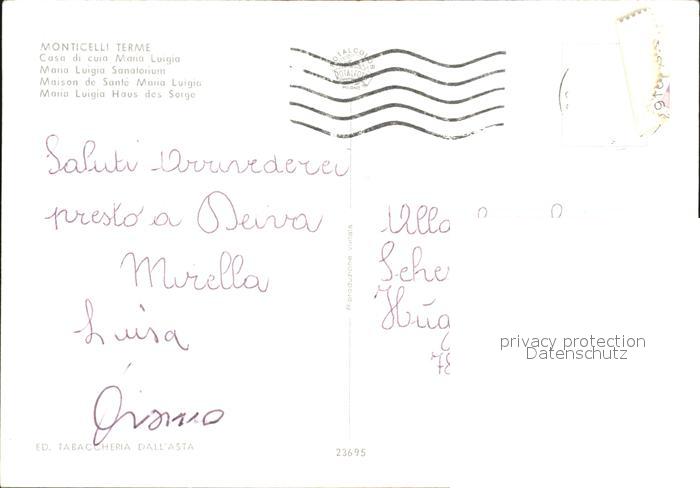 MONTICELLI TERME
Casa di cura Maria Luigia
Maria Luigia Sanatorium
Maison de Santé Maria Luigia
Maria Luigia Haus des Sorge
Saluti Arrivederci
presto a Deiva
Mirella
Luisa
ED. TABACCHERIA DALL'ASTA
23695
Riproduzione vietata
privacy protection
Datenschutz